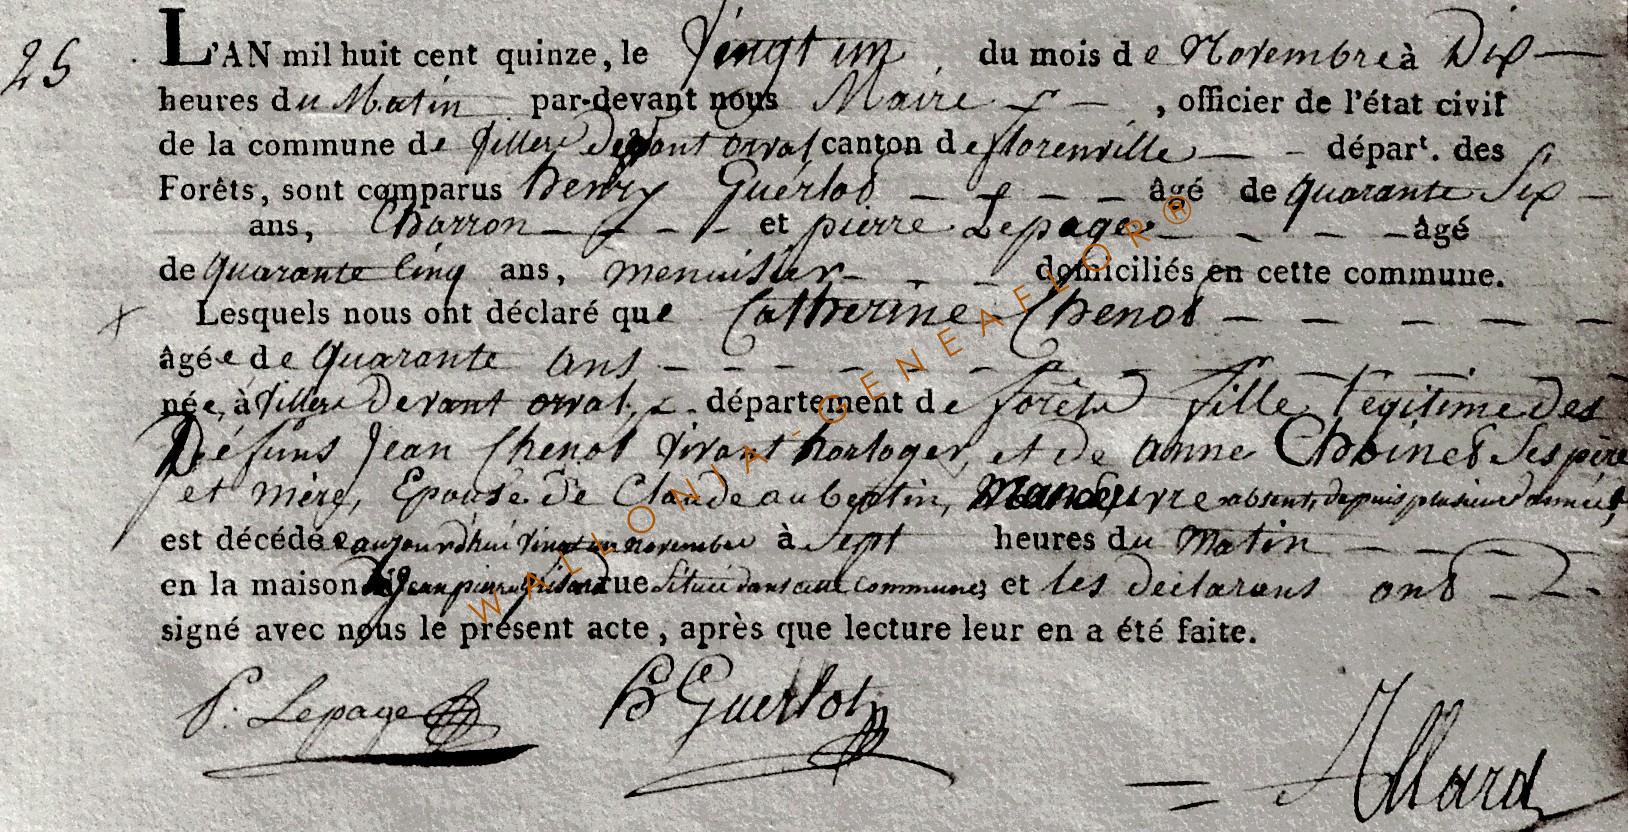 25
L'AN mil huit cent quinze, le Vingt un du mois de Novembre à Dix
heures du Matin par-devant nous Maire, officier de l'état civil
de la commune de Villers Devant orval canton de florenville départ. des
Forêts, sont comparus henry Guerlot âgé de quarante Six
ans, Charron et pierre Lepage âgé
de quarante Cinq ans, menuisier domiciliés en cette commune.
Lesquels nous ont déclaré que Catherine Chenot
âgée de quarante ans
née, à Villers Devant orval, département de forêts fille legitime des
Défuns Jean Chenot vivant horloger, et de anne Choinet Ses père
et mère, Epouse de Claude aubertin, Manoeuvre absent, depuis plusieurs années,
est décédée aujourdhui Vingt un novembre à Sept heures du Matin
en la maison de Jean pierre rue Située dans cette Commune; et les déclarans ont
signé avec nous le présent acte, après que lecture leur en a été faite.
P. Lepage H Guerlot
Allard
WALLONIA-GENEAFLOR®